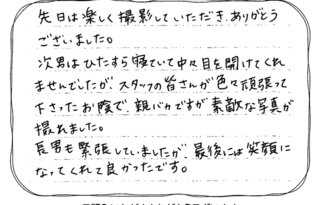 先日は楽しく撮影していただき、ありがとう
ございました。
次男はひたすら寝ていて中々目を開けてくれ
ませんでしたが、スタッフの皆さんが色々頑張って
下さったお陰で、親バカですが素敵な写真が
撮れました。
長男も緊張していましたが、最後には笑顔に
なってくれて良かったです。